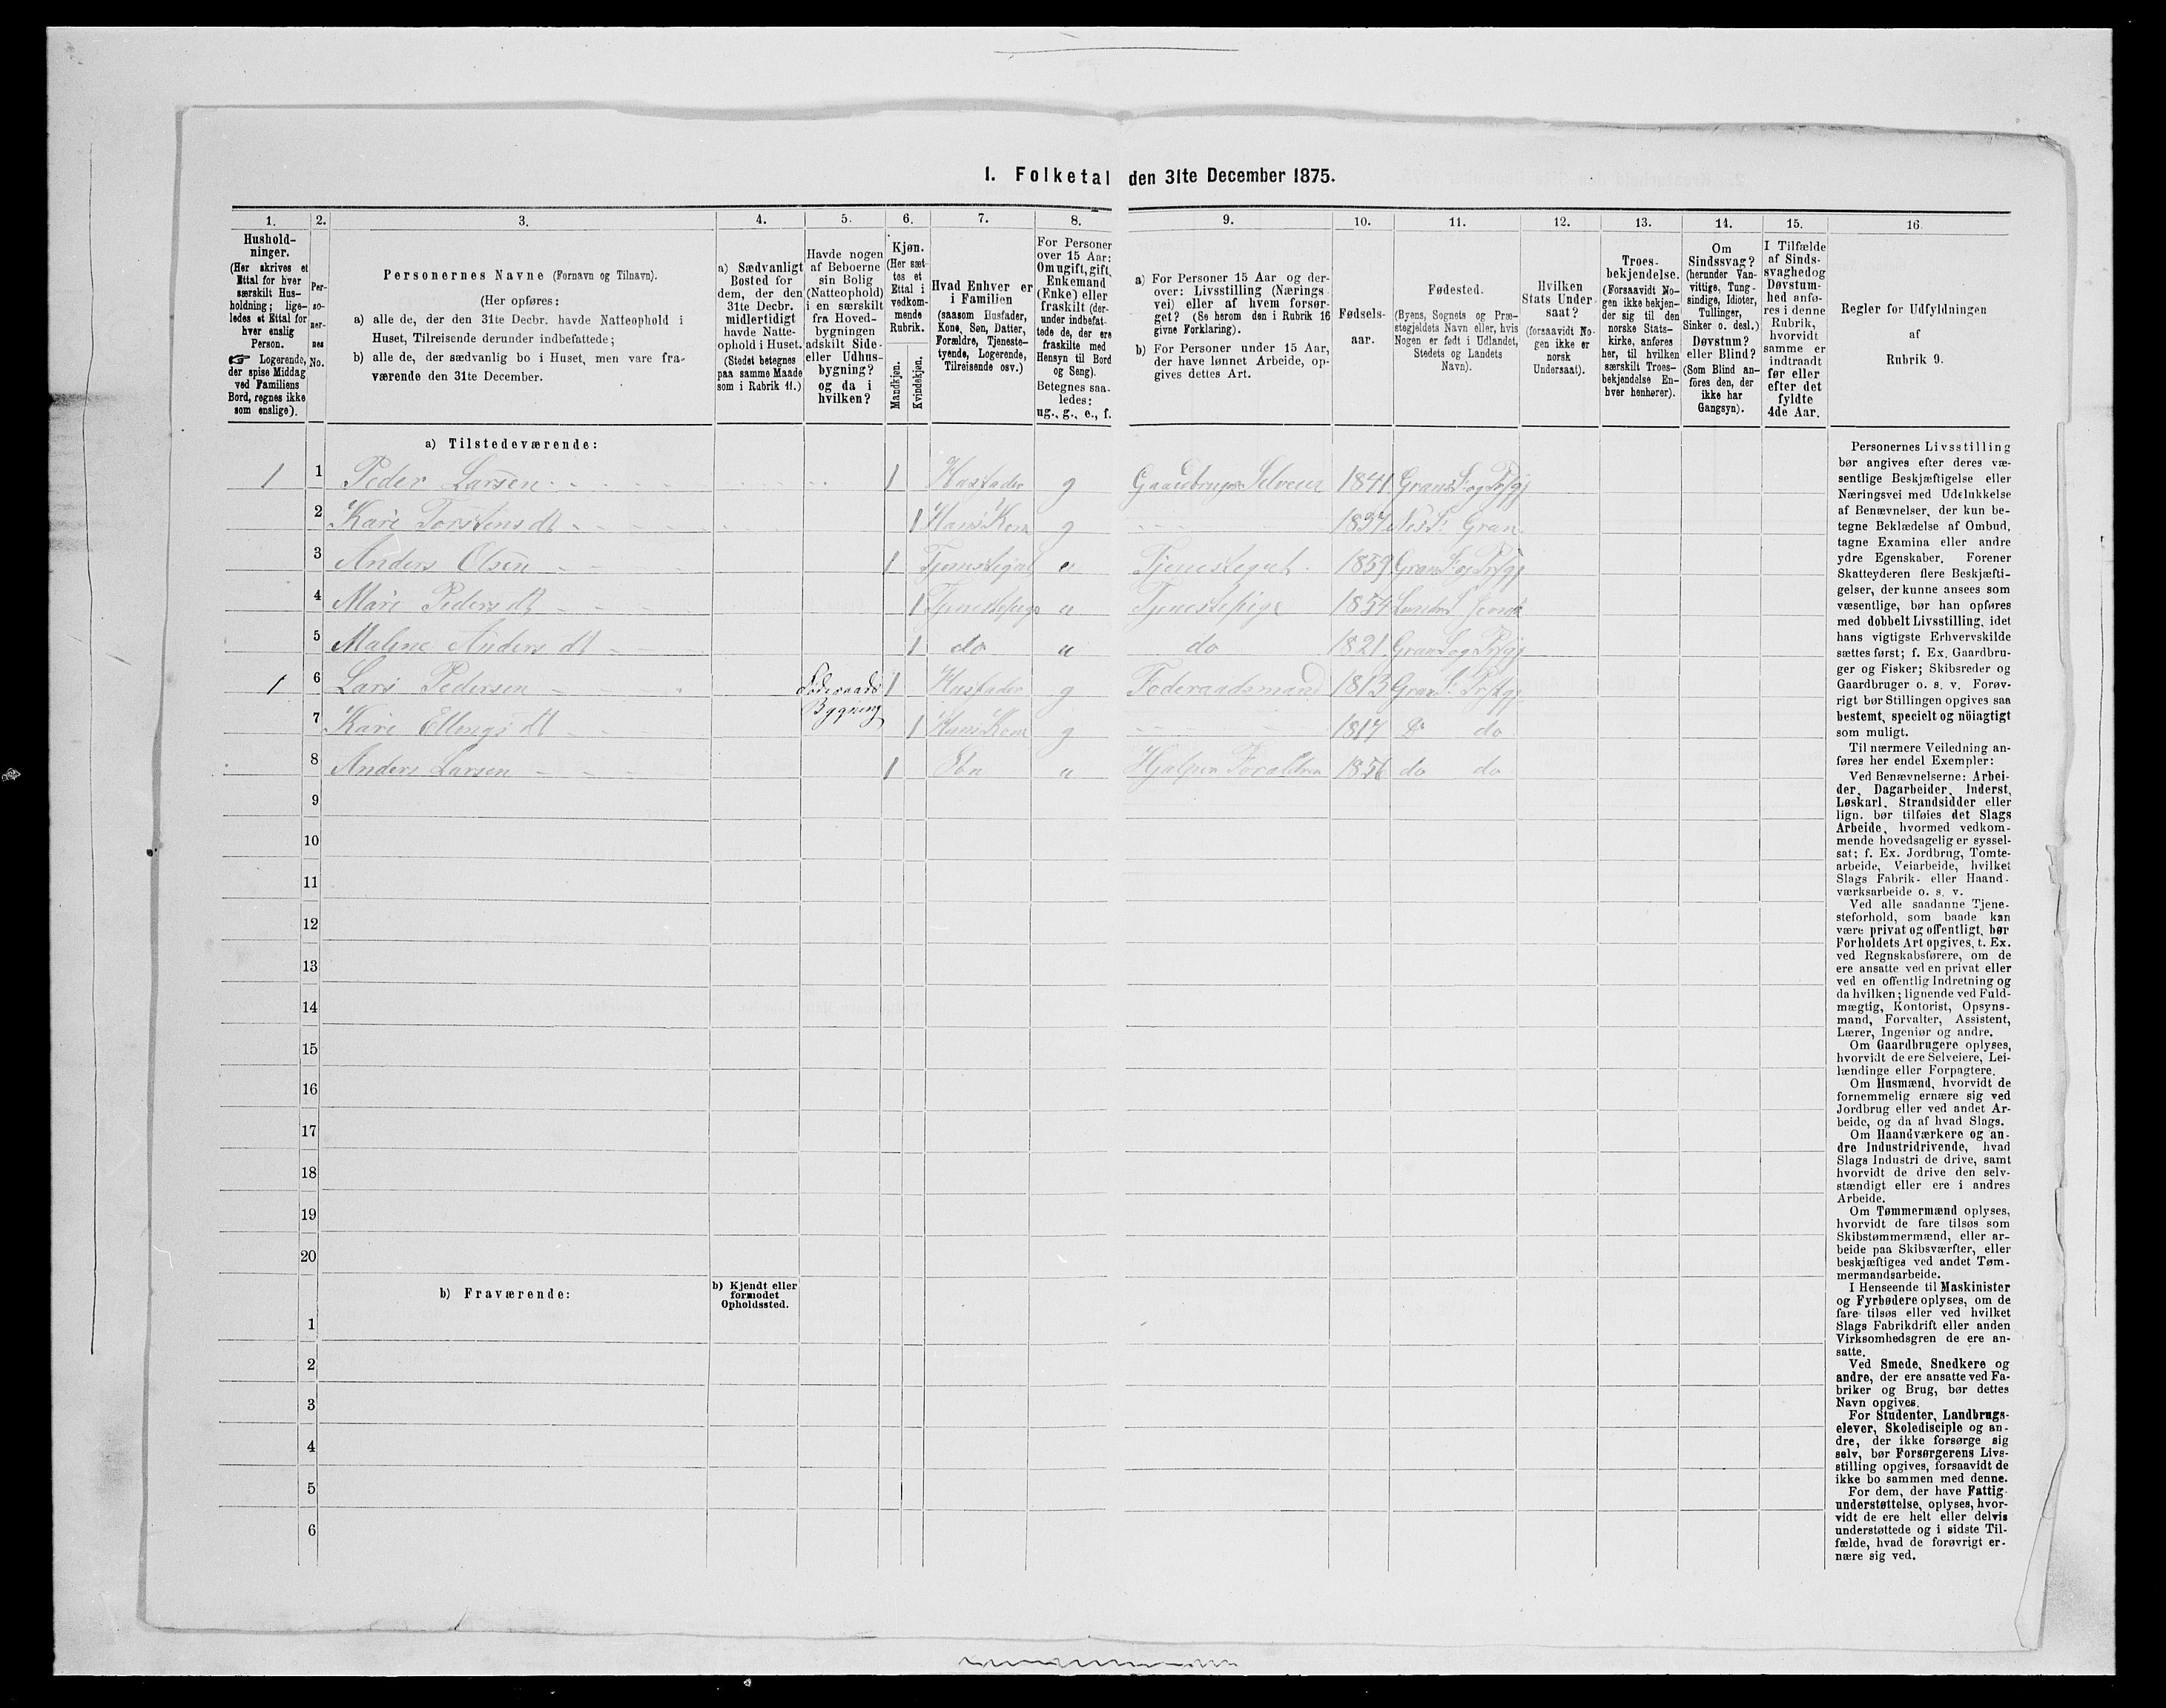 1. Folketal den 31te December 1875.
1.
Hushold-
ninger.
(Her skrives et
Ettal for hver
særskilt Hus-
holdning; lige-
ledes et Ettal for
hver enslig
Person.
☞ Logerende,
der spise Middag
ved Familiens
Bord, regnes ikke
som enslige).
2.
Per-
so-
ner-
nes
No.
3.
Personernes Navne (Fornavn og Tilnavn).
(Her opføres:
a) alle de, der den 31te Decbr. havde Natteophold i
Huset, Tilreisende derunder indbefattede;
b) alle de, der sædvanlig bo i Huset, men vare fra-
værende den 31te December.
4.
a) Sædvanligt
Bosted for
dem, der den
31te Decbr.
midlertidigt
havde Natte-
ophold i Huset.
(Stedet betegnes
paa samme Maade
som i Rubrik 11.)
5.
Havde nogen
af Beboerne
sin Bolig
(Natteophold)
i en særskilt
fra Hoved-
bygningen
adskilt Side-
eller Udhus-
bygning?
og da i
hvilken?
6.
Kjøn.
(Her sæt-
tes et
Ettal i
vedkom-
mende
Rubrik.
Mandkjøn.
Kvindekjøn.
7.
Hvad Enhver er
i Familien
(saasom Husfader,
Kone, Søn, Datter,
Forældre, Tjeneste-
tyende, Logerende,
Tilreisende osv.)
8.
For Personer
over 15 Aar:
Om ugift, gift,
Enkemand
(Enke) eller
fraskilt (der-
under indbefat-
tede de, der ere
fraskilte med
Hensyn til Bord
og Seng).
Betegnes saa-
ledes:
ug., g., e., f.
9.
a) For Personer 15 Aar og der-
over: Livsstilling (Nærings-
vei) eller af hvem forsør-
get? (Se herom den i Rubrik 16
givne Forklaring).
b) For Personer under 15 Aar,
der have lønnet Arbeide, op-
gives dettes Art.
10.
Fødsels-
aar.
11.
Fødested.
(Byens, Sognets og Præ-
stegjeldets Navn eller, hvis
Nogen er født i Udlandet,
Stedets og Landets
Navn).
12.
Hvilken
Stats Under-
saat?
(forsaavidt No-
gen ikke er
norsk
Undersaat).
13.
Troes-
bekjendelse.
(Forsaavidt No-
gen ikke bekjen-
der sig til den
norske Stats-
kirke, anføres
her, til hvilken
særskilt Troes-
bekjendelse En-
hver henhører).
14.
Om
Sindssvag?
(herunder Van-
vittige, Tung-
sindige, Idioter,
Tullinger,
Sinker o. desl.)
Døvstum?
eller Blind?
(Som Blind an-
föres den, der
ikke har
Gangsyn).
15.
I Tilfælde
af Sinds-
svaghed og
Døvstum-
hed anfø-
res i denne
Rubrik,
hvorvidt
samme er
indtraadt
før eller
efter det
fyldte
4de Aar.
16.
Regler for Udfyldningen
af
Rubrik 9.
a) Tilstedeværende:
1 1 Peder Larsen 1 Husfader g Gaardbruger Selveier 1841 Grans S. og Præstgj
2 Kari Torstensdt 1 Hans Kone g 1837 Næs S. Gran
3 Anders Olsen 1 Tjenstegut u Tjenestegut 1859 Grans S. og Præstgj
4 Mari Pedersdt 1 Tjenestepige u Tjenestepige 1854
5 Maline Andersdt 1 do u do 1821 Grans S og Præstgj
1 6 Lars Pedersen Föderaads Bygning 1 Husfader g Föderaadsmand 1813 Grans S. Præstgj
7 Kari Ellingsdt 1 Hans Kone g 1817 Do do
8 Anders Larsen 1 Sön u Hjelper Foraldren 1856 do do
9
10
11
12
13
14
15
16
17
18
19
20
b) Fraværende:
b) Kjendt eller
formodet
Opholdssted.
1
2
3
4
5
6
Personernes Livsstilling
bør angives efter deres væ-
sentlige Beskjæftigelse eller
Næringsvei med Udelukkelse
af Benævnelser, der kun be-
tegne Beklædelse af Ombud,
tagne Examina eller andre
ydre Egenskaber. Forener
Skatteyderen flere Beskjæfti-
gelser, der kunne ansees som
væsentlige, bør han opføres
med dobbelt Livsstilling, idet
hans vigtigste Erhvervskilde
sættes først; f. Ex. Gaardbru-
ger og Fisker; Skibsreder og
Gaardbruger o. s. v. Forøv-
rigt bør Stillingen opgives saa
bestemt, specielt og nöiagtigt
som muligt.
Til nærmere Veiledning an-
føres her endel Exempler:
Ved Benævnelserne: Arbei-
der, Dagarbeider, Inderst,
Løskarl, Strandsidder eller
lign. bør tilføies det Slags
Arbeide, hvormed vedkom-
mende hovedsagelig er syssel-
sat; f. Ex. Jordbrug, Tomte-
arbeide, Veiarbeide, hvilket
Slags Fabrik- eller Haand-
værksarbeide o. s. v.
Ved alle saadanne Tjene-
steforhold, som baade kan
være privat og offentligt, bør
Forholdets Art opgives, t. Ex.
ved Regnskabsførere, om de
ere ansatte ved en privat eller
ved en offentlig Indretning og
da hvilken; lignende ved Fuld-
mægtig, Kontorist, Opsyns-
mand, Forvalter, Assistent,
Lærer, Ingeniør og andre.
Om Gaardbrugere oplyses,
hvorvidt de ere Selveiere, Lei-
lændinge eller Forpagtere.
Om Husmænd, hvorvidt de
fornemmelig ernære sig ved
Jordbrug eller ved andet Ar-
beide, og da af hvad Slags.
Om Haandværkere og an-
dre Industridrivende, hvad
Slags Industri de drive, samt
hvorvidt de drive den selv-
stændigt eller ere i andres
Arbeide.
Om Tømmermænd oplyses,
hvorvidt de fare tilsøs som
Skibstømmermænd, eller ar-
beide paa Skibsværfter, eller
beskjæftiges ved andet Tøm-
mermandsarbeide.
I Henseende til Maskinister
og Fyrbødere oplyses, om de
fare tilsøs eller ved hvilket
Slags Fabrikdrift eller anden
Virksomhedsgren de ere an-
satte.
Ved Smede, Snedkere og
andre, der ere ansatte ved Fa-
briker og Brug, bør dettes
Navn opgives.
For Studenter, Landbrugs-
elever, Skoledisciple og an-
dre, der ikke forsørge sig
selv, bør Forsørgerens Livs-
stilling opgives, forsaavidt de
ikke bo sammen med denne.
For dem, der have Fattig-
understøttelse, oplyses, hvor-
vidt de ere helt eller delvis
understøttede og i sidste Til-
fælde, hvad de forøvrigt er-
nære sig ved.